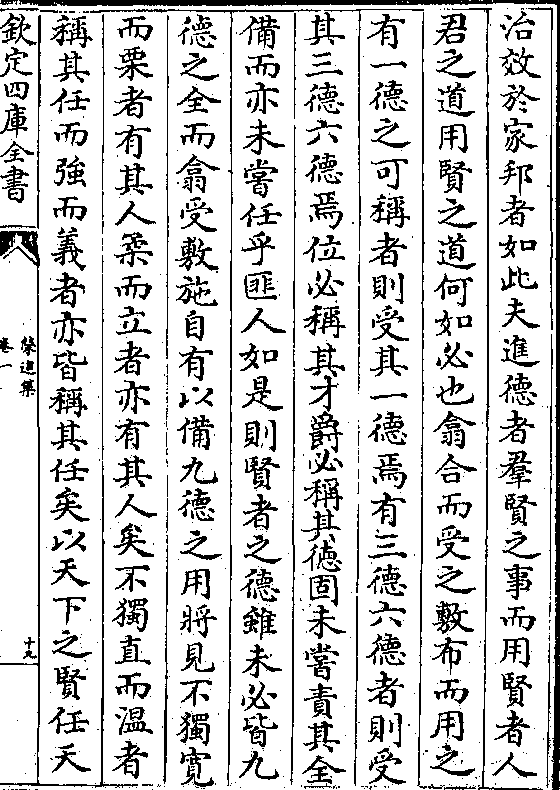 治效於家邦者如此夫進德者羣賢之事而用賢者人
君之道用賢之道何如必也翕合而受之敷布而用之
有一德之可稱者則受其一德焉有三德六德者則受
其三德六德焉位必稱其才爵必稱其德固未嘗責其全
備而亦未嘗任乎匪人如是則賢者之德雖未必皆九
德之全而翕受敷施自有以備九德之用將見不獨寛
而栗者有其人柔而立者亦有其人矣不獨直而温者
稱其任而強而義者亦皆稱其任矣以天下之賢任天
欽定四庫全書
榮進集
卷一
十九